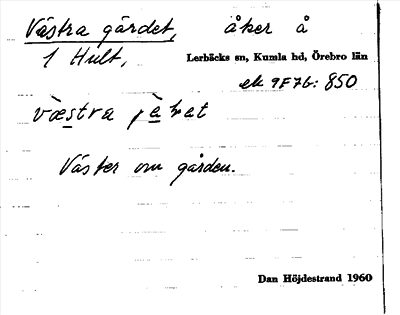 Västra gärdet, åker å
1 Hult, Lerbäcks sn, Kumla hd, Örebro län
ek 9F7b: 850
væstra
Väster om gården.
Dan Höjdestrand 1960